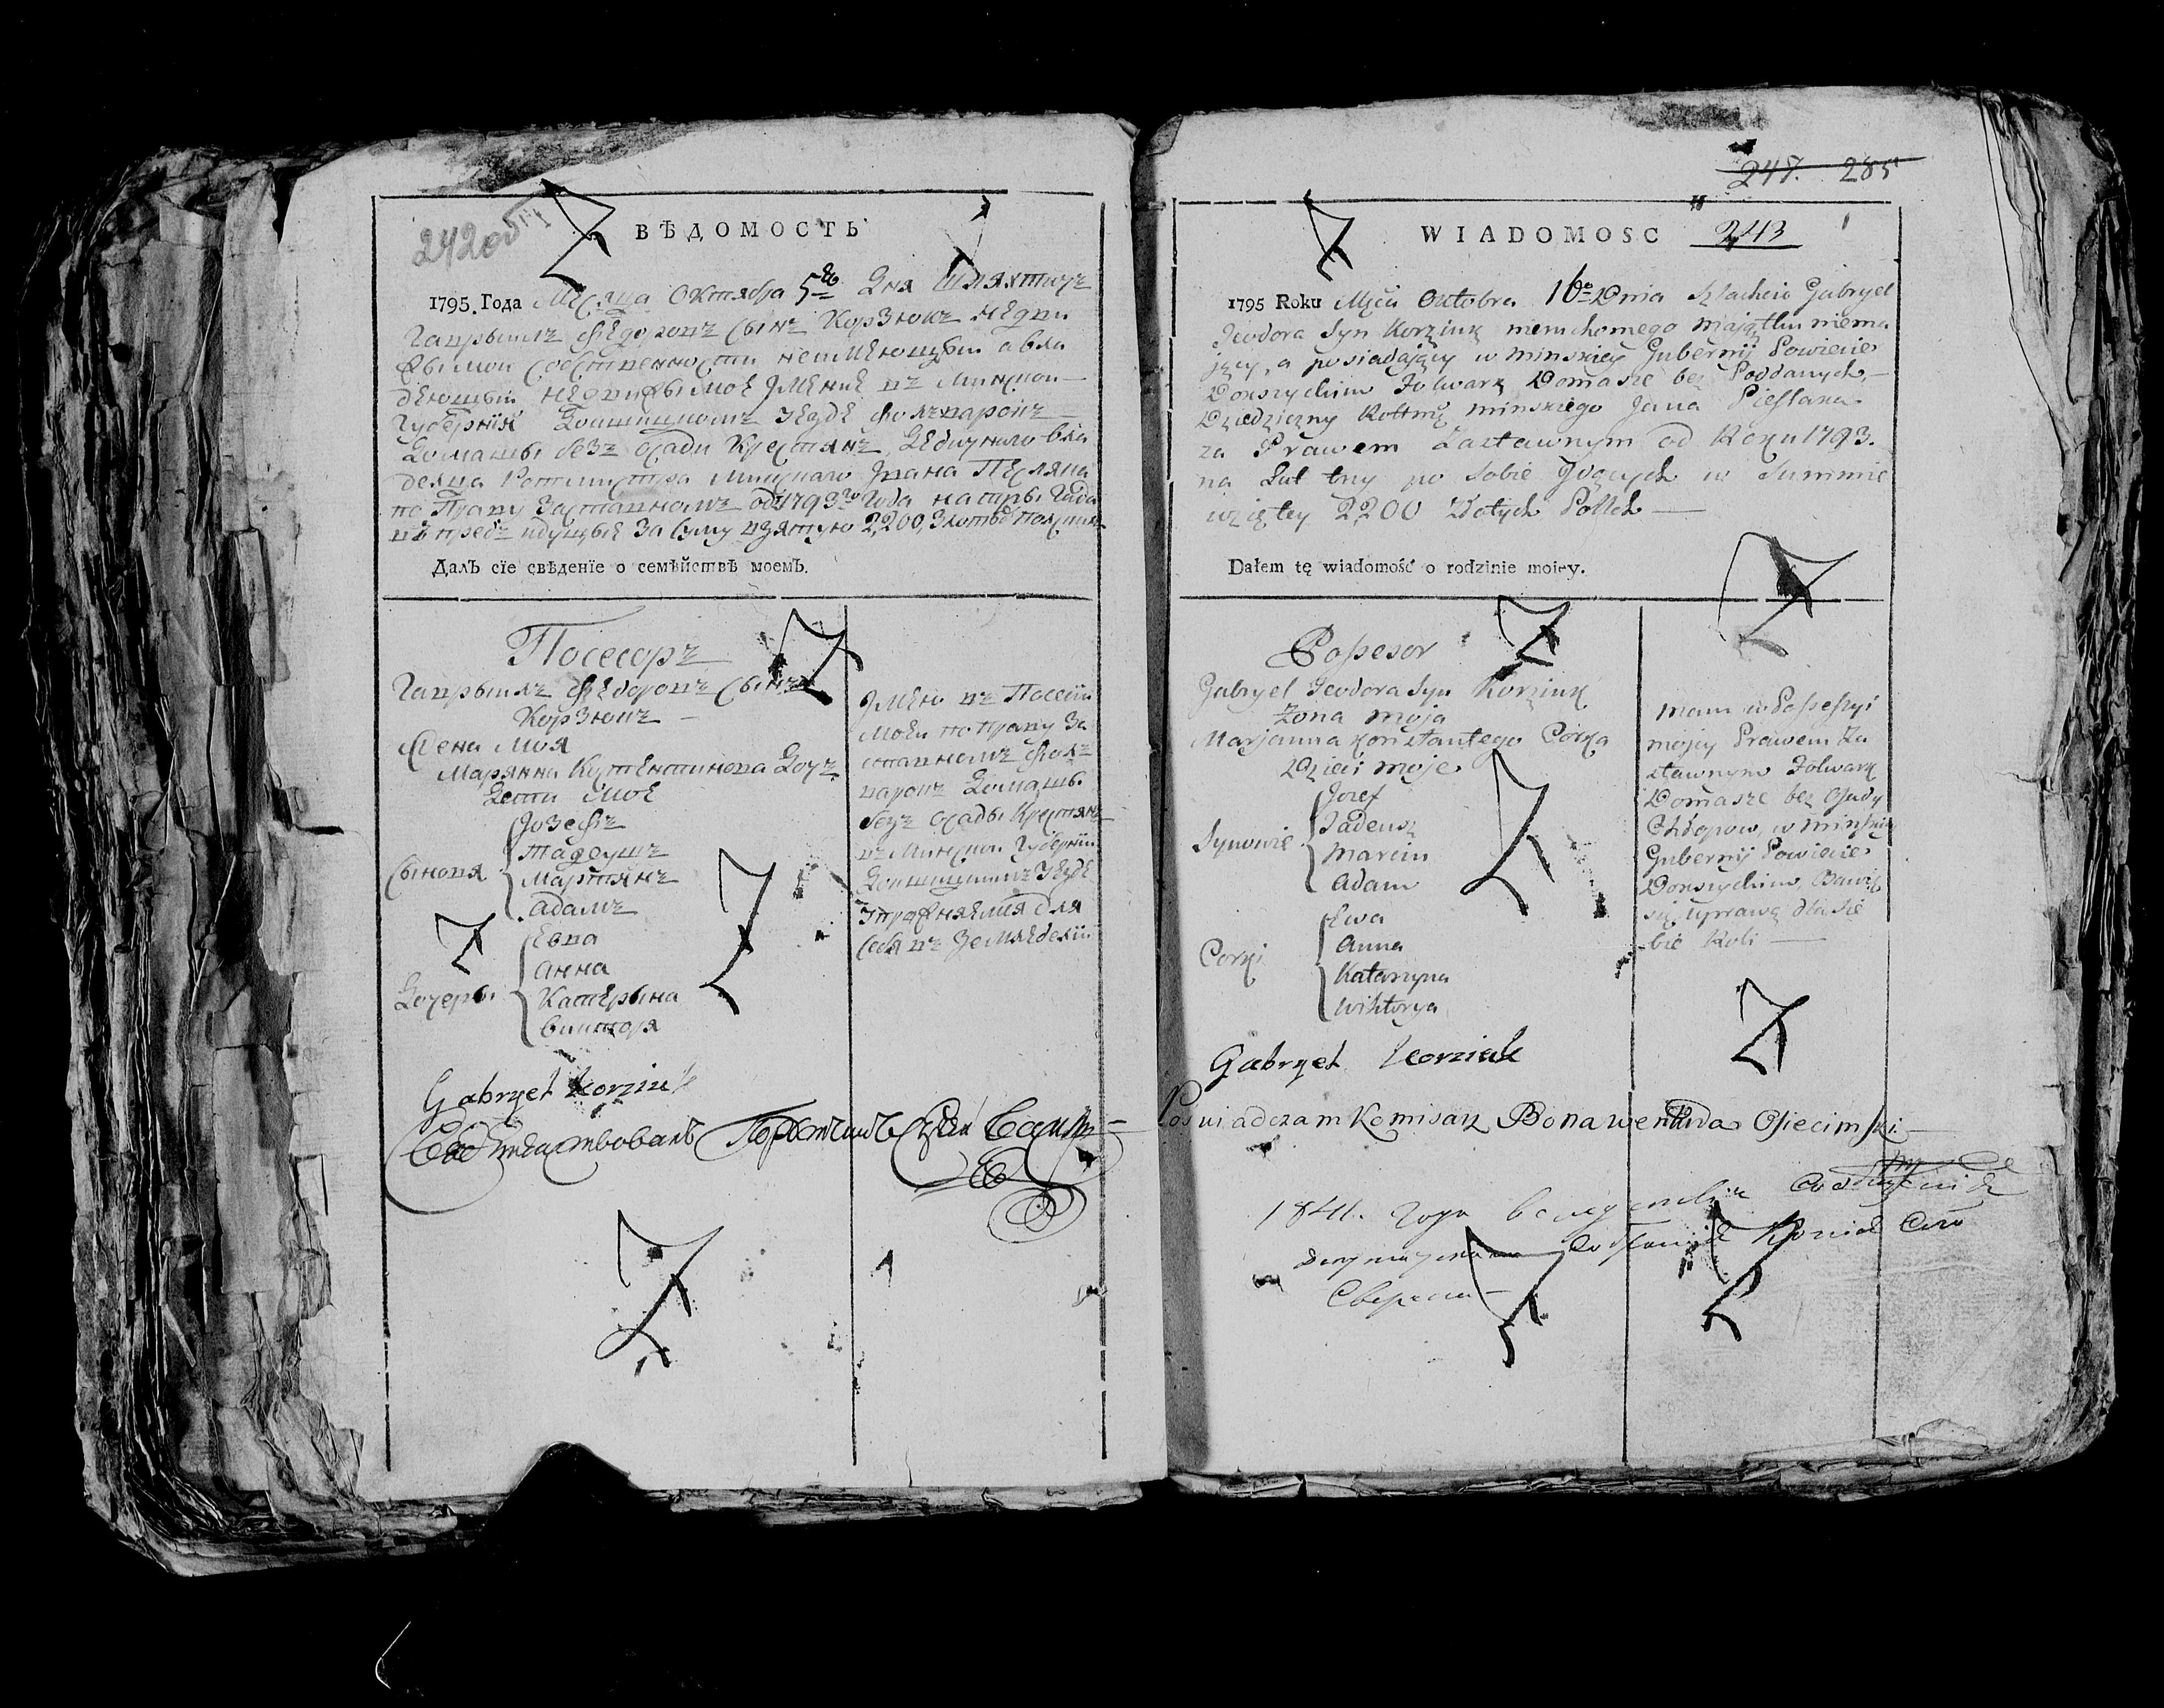 242 об
ВѢДОМОСТЬ
1795. Года Месяца Октября 5го Дня Шляхтичъ
Гаврыилъ Федоровъ Сынъ Корзюкъ недви
жымой собственности неимеющый а вла
деющый недвижымое Имение въ Минской
Губернии Докшицкомъ уезде Фольваромъ
Домашы безъ осады Крестянъ, Дедичнаго вла
дельца Ротмистра Минскаго Ивана Песляка
по Праву Заставномъ од 1793го Года на тры Года
въ предъ идущые за сумму взятую 2,200, Злотых Польских
Далъ сїе свѣденїе о семѣйствѣ моемъ.
Посесоръ
Гаврыилъ Федоровъ Сынъ
Корзюкъ
Жена Моя
Марянна Костентинова Дочъ
Дети Мое
Сыновя
Иозефъ
Тадеушъ
Мартянъ
Адамъ
Дочеры
Евва
Анна
Катерына
Викторя
Имею въ Посесии
Моей по Праву За
ставномъ Фоль
варокъ Домашы
безъ осады Крестянъ
въ Минской Губернии
Докшицкомъ Уезде
Упражняемся для
себя въ Земледелии
Gabryel Korziuk
Свидетелствовалъ
WIADOMOSC
247. 285
243
1795 Roku Mjca Octobra 16go Dnia Szlachcic Gabryel
Teodora Syn Korziuk nieruchomego Majątku niema
jący, a posiadający w Minskiey Gubernij Powiecie
Dokszyckim Folwark Domasze bez Poddanych,
Dziedziczny Rottmą minskiego Jana Pieslaka
za Prawem Zastawnym od Roku 1793.
na Lat trzy po sobie Idących w Summie
wziętey 2,200 Złotych Polłch
Dałem tę wiadomość o rodzinie moiey.
Possesor
Gabryel Teodora Syn Korziuk
Żona moja
Marjanna Konstantego Corka
Dzieci moje
Synowie
Jozef
Tadeusz
Marcin
Adam
Corki
Ewa
Anna
Katarzyna
Wiktorya
mam w Possessyi
mojey Prawem Za
stawnym Folwark
Domasze bez Osady
Chłopow, w Minskiey
Gubernij Powiecie
Dokszyckim, Bawię
się uprawą dla sie
bie Roli
Gabryel Korziuk
Poswiadczam Komisarz Bonawentura Osiecimski
1841. года вследствие
Сверена